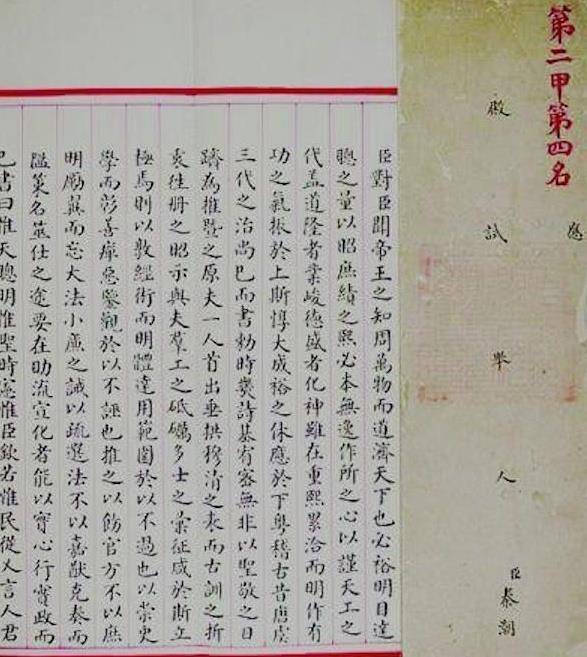 第二甲第四名
應
殿試舉人臣秦潮
臣對臣聞帝王之知周萬物而道濟天下也必裕明目達
聰之量以昭庶績之熙必本無逸作所之心以謹天工之
代蓋道隆者業峻德盛者化神雖在重熙累洽而明作有
功之氣振於上斯惇大成裕之休應於下粵稽古昔唐虞
三代之治尚已而書勅時幾詩基宥密無非以聖敬之日
躋為推暨之原夫一人首出垂拱穆清之表而古訓之折
衷徃冊之昭示與夫羣工之砥礪多士之彙征咸於斯立
極焉則以敦經術而明體達用範圍於以不過也以崇史
學而彰善癉惡鑒觀於以不誣也推之以飭官方不以庶
明勵翼而忘大法小廉之誡以疏選法不以嘉猷克奏而
濫策名筮仕之途要在助流宣化者能以實心行實政而
已書曰惟天聰明惟聖時憲惟臣欽若惟民從乂言人君